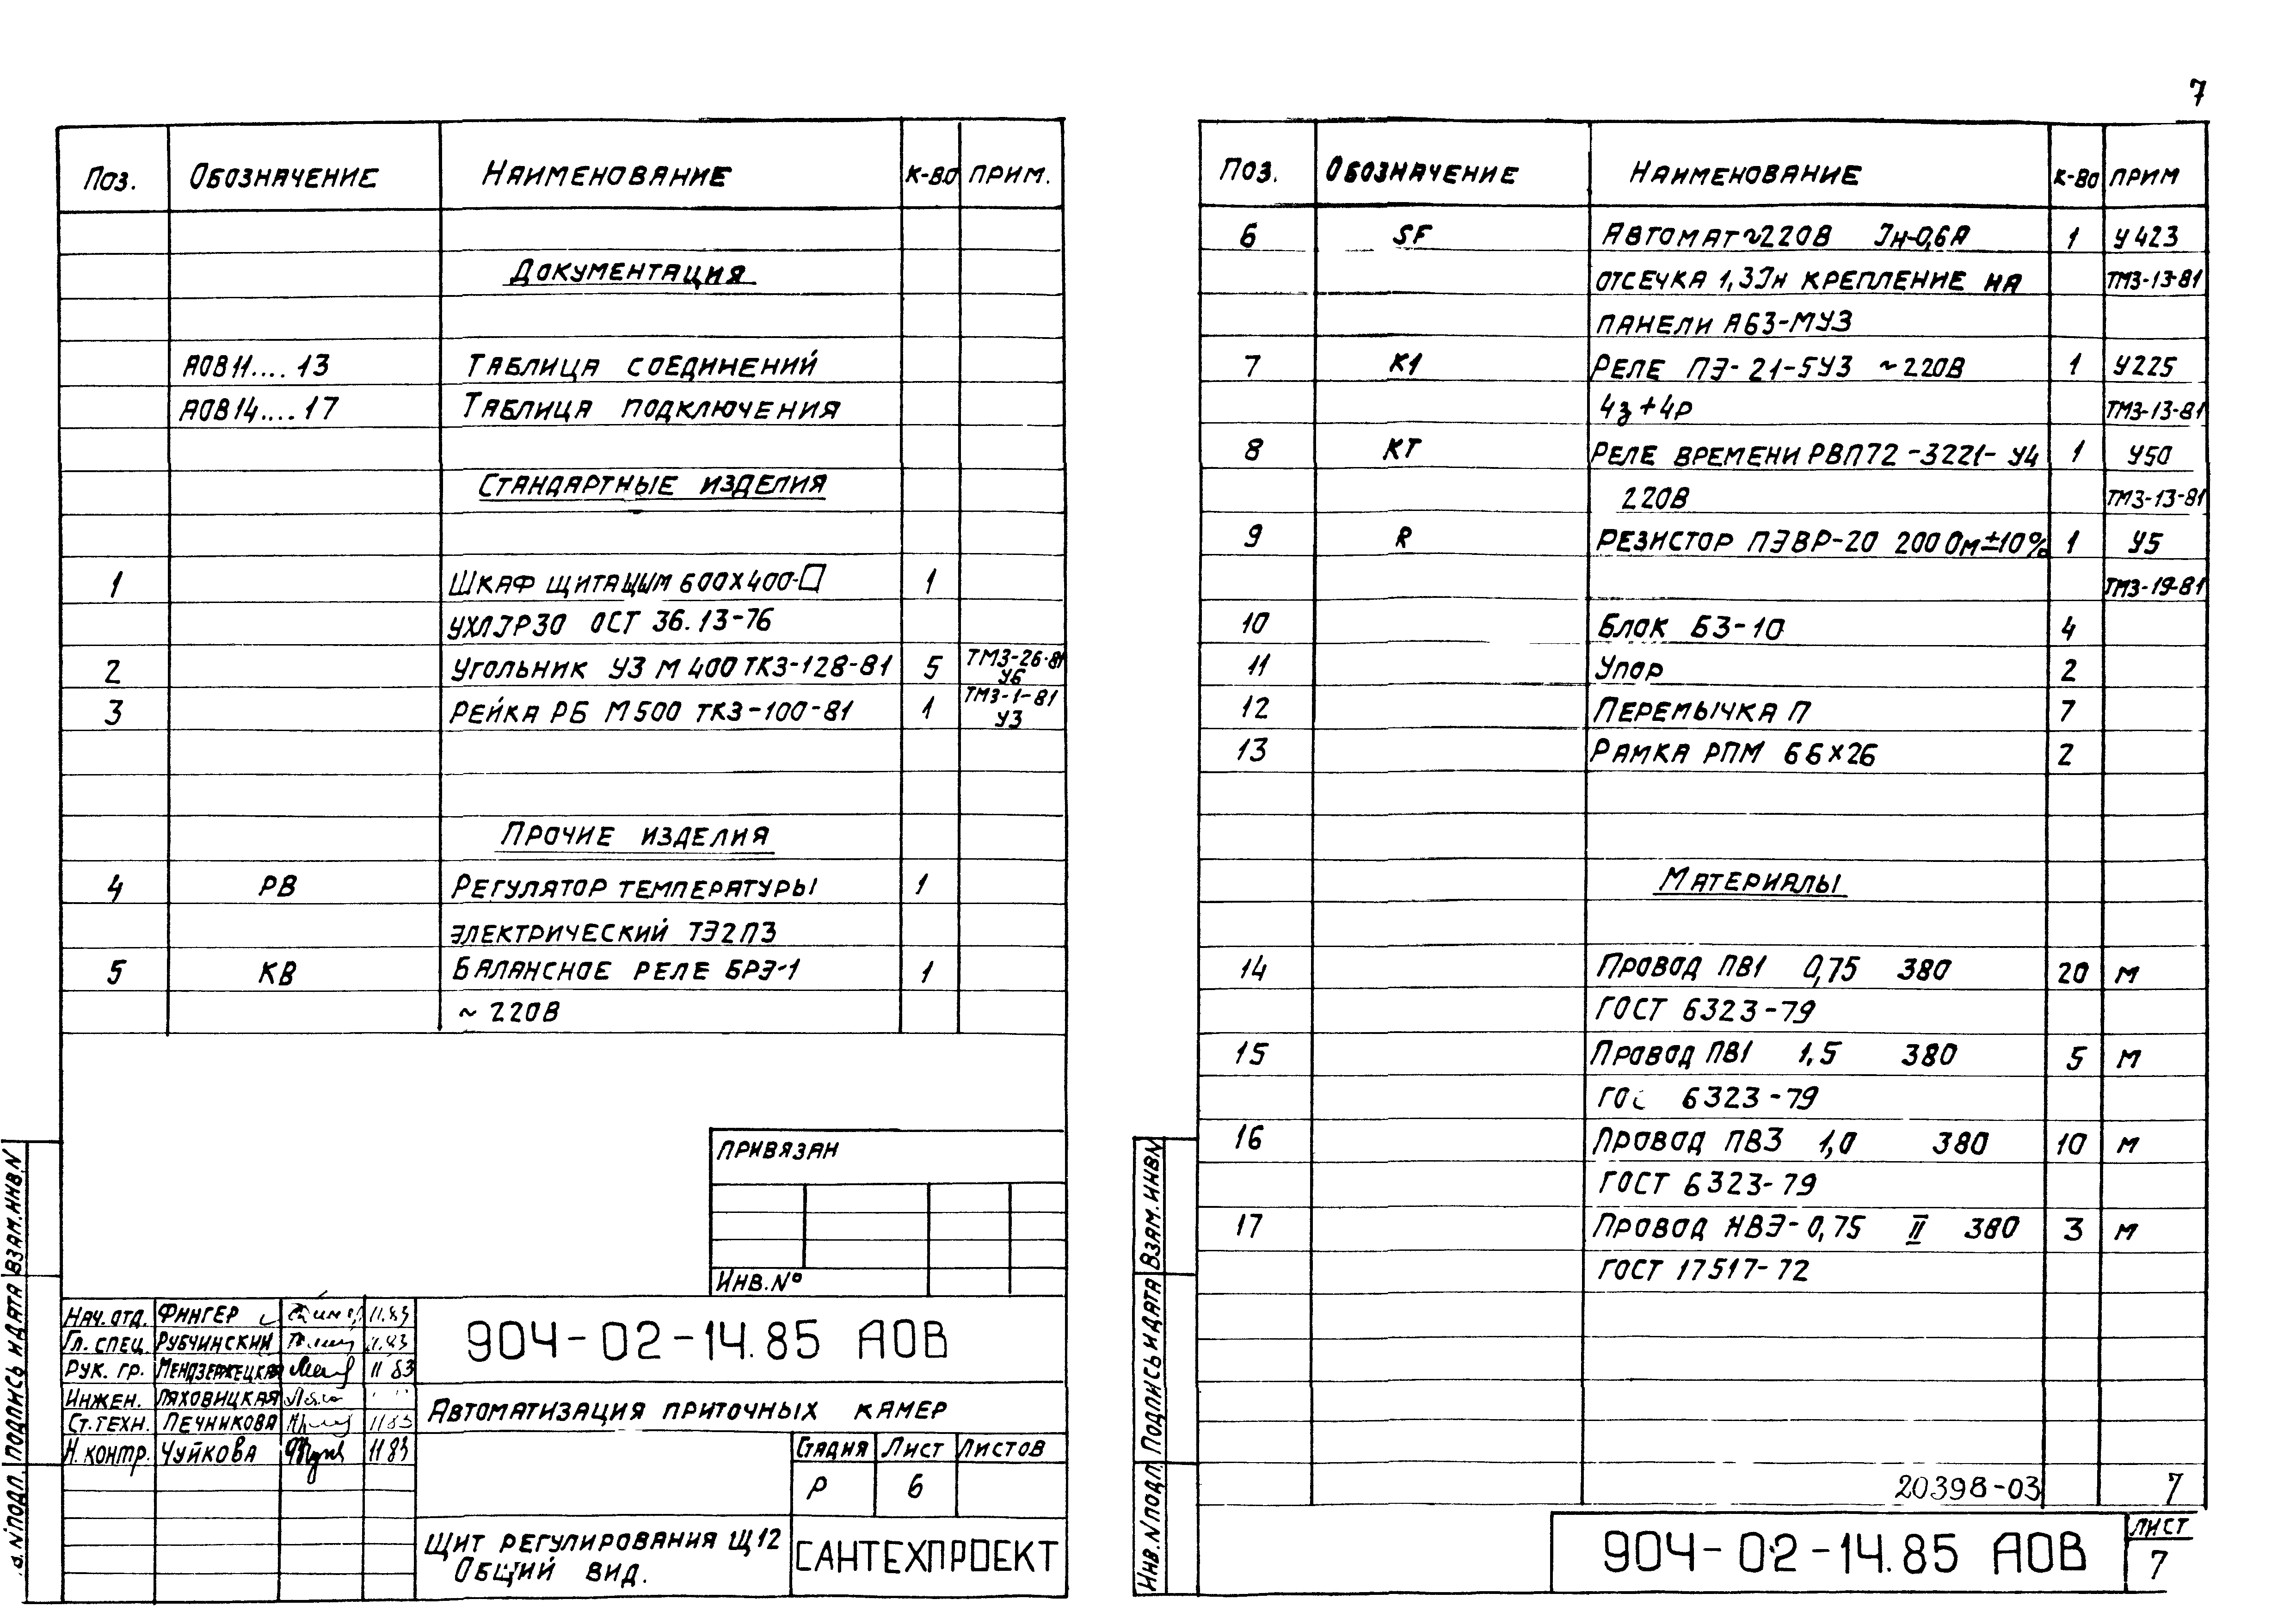 7
Поз. Обозначение Наименование к-во прим.
Документация
АОВ11....13 Таблица соединений
АОВ14....17 Таблица подключения
Стандартные изделия
1 Шкаф щита ЩШМ 600х400-□ 1
УХЛ3Р30 ОСТ 36.13-76
2 Угольник УЗ М 400 ТКЗ-128-81 5 ТМЗ-26-81
У6
3 Рейка РБ М500 ТКЗ-100-81 1 ТМЗ-1-81
У3
Прочие изделия
4 РВ Регулятор температуры 1
электрический ТЭ2П3
5 КВ Балансное реле БРЭ-1 1
~ 220В
Привязан
Инв.№
Нач. отд. Фингер 11.83
Гл. спец. Рубчинский 11.83
Рук. гр. Мендзержецкая 11 83
Инжен. Ляховицкая
Ст. техн. Печникова 11 83
Н. контр. Чуйкова 11 83
904-02-14.85 АОВ
Автоматизация приточных камер
Стадия Лист Листов
Р 6
Щит регулирования Щ12
Общий вид.
САНТЕХПРОЕКТ
Взам. инв. N
Подпись и дата
N подл.
Поз. Обозначение Наименование к-во прим
6 SF Автомат ~220В Iн-0,6А 1 У423
отсечка 1,3Iн крепление на ТМ3-13-81
панели А63-МУ3
7 К1 Реле ПЭ-21-5У3 ~220В 1 У225
4з+4р ТМ3-13-81
8 КТ Реле времени РВП72-3221-У4 1 У50
220В ТМ3-13-81
9 R Резистор ПЭВР-20 200 Ом±10% 1 У5
ТМ3-19-81
10 Блок БЗ-10 4
11 Упор 2
12 Перемычка П 7
13 Рамка РПМ 66х26 2
Материалы
14 Провод ПВ1 0,75 380 20 м
ГОСТ 6323-79
15 Провод ПВ1 1,5 380 5 м
ГОС 6323-79
16 Провод ПВ3 1,0 380 10 м
ГОСТ 6323-79
17 Провод НВЭ-0,75 II 380 3 м
ГОСТ 17517-72
20398-03 7
Взам. инв N
Подпись и дата
Инв. N подл.
904-02-14.85 АОВ
Лист
7